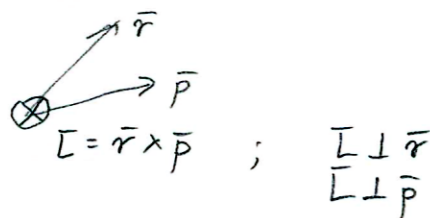 r̄
p̄
L̄ = r̄ × p̄ ; L̄ ⊥ r̄
L̄ ⊥ p̄